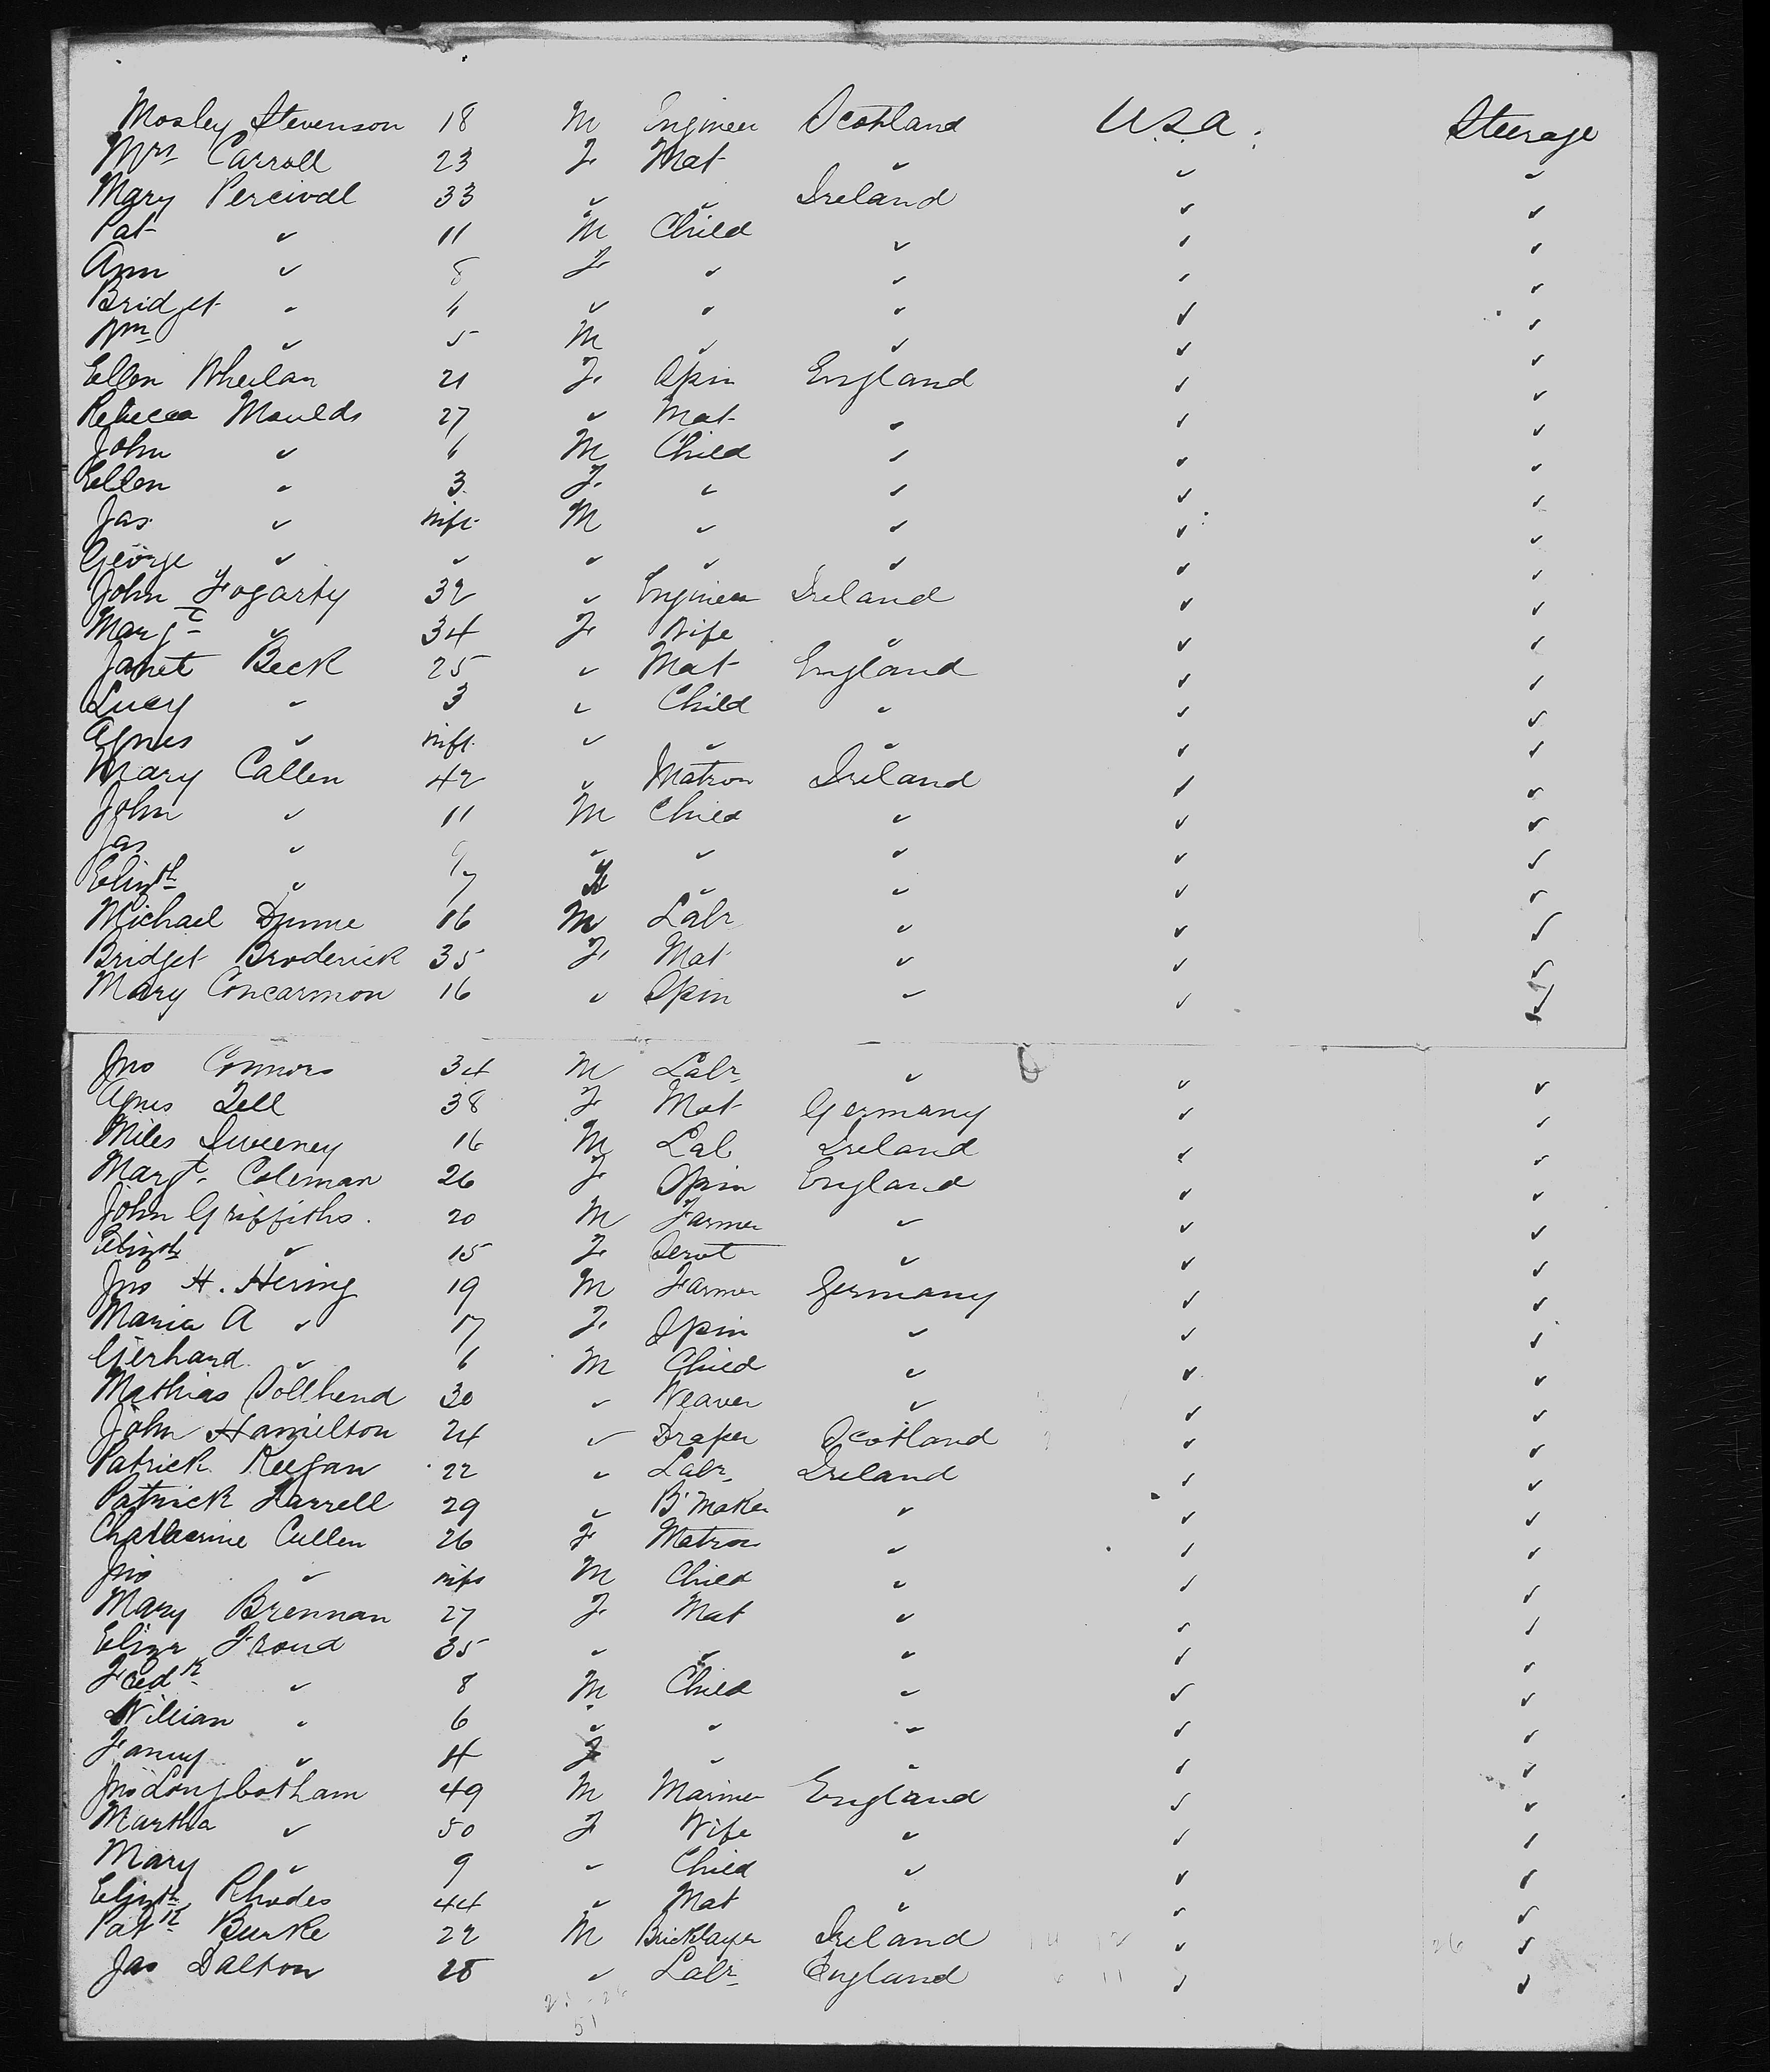 Mosley Stevenson 18 M Engineer Scotland U.S.A. Steerage
Mrs Carroll 23 F Mat " " "
Mary Percival 33 " " Ireland " "
Pat " 11 M Child " " "
Ann " 8 F " " " "
Bridget " 6 " " " " "
Wm " 5 M " " " "
Ellen Whelan 21 F Spin England " "
Rebecca Moulds 27 " Mat " " "
John " 6 M Child " " "
Ellen " 3 F " " " "
Jas " inft M " " " "
George " " " " " " "
John Fogarty 32 " Engineer Ireland " "
Margt " 34 F Wife " " "
Janet Beck 25 " Mat England " "
Lucy " 3 " Child " " "
Agnes " inft " " " " "
Mary Callen 42 " Matron Ireland " "
John " 11 M Child " " "
Jas " 9 " " " " "
Elizth " 7 F " " " "
Michael Dunne 16 M Labr " " "
Bridget Broderick 35 F Mat " " "
Mary Concarmon 16 " Spin " " "
Jno Connors 34 M Labr " " "
Agnes Zell 38 F Mat Germany " "
Miles Sweeney 16 M Lab Ireland " "
Margt Coleman 26 F Spin England " "
John Griffiths 20 M Farmer " " "
Elizth " 15 F Servt " " "
Jno H. Hering 19 M Farmer Germany " "
Maria A " 17 F Spin " " "
Gerhard " 6 M Child " " "
Mathias 30 " Weaver " " "
John Hamilton 24 " Draper Scotland " "
Patrick Keegan 22 " Labr Ireland " "
Patrick Farrell 29 " B'Maker " " "
Chatharine Cullen 26 F Matron " " "
Jno " inft M Child " " "
Mary Brennan 27 F Mat " " "
Eliza Froud 35 " " " " "
Fredk " 8 M Child " " "
William " 6 " " " " "
Fanny " 4 F " " " "
Jno Longbotham 49 M Mariner England " "
Martha " 50 F Wife " " "
Mary " 9 " Child " " "
Elizth Rhodes 44 " Mat " " "
Patk Burke 22 M Bricklayer Ireland " "
Jas Dalton 28 " Labr England " "
51